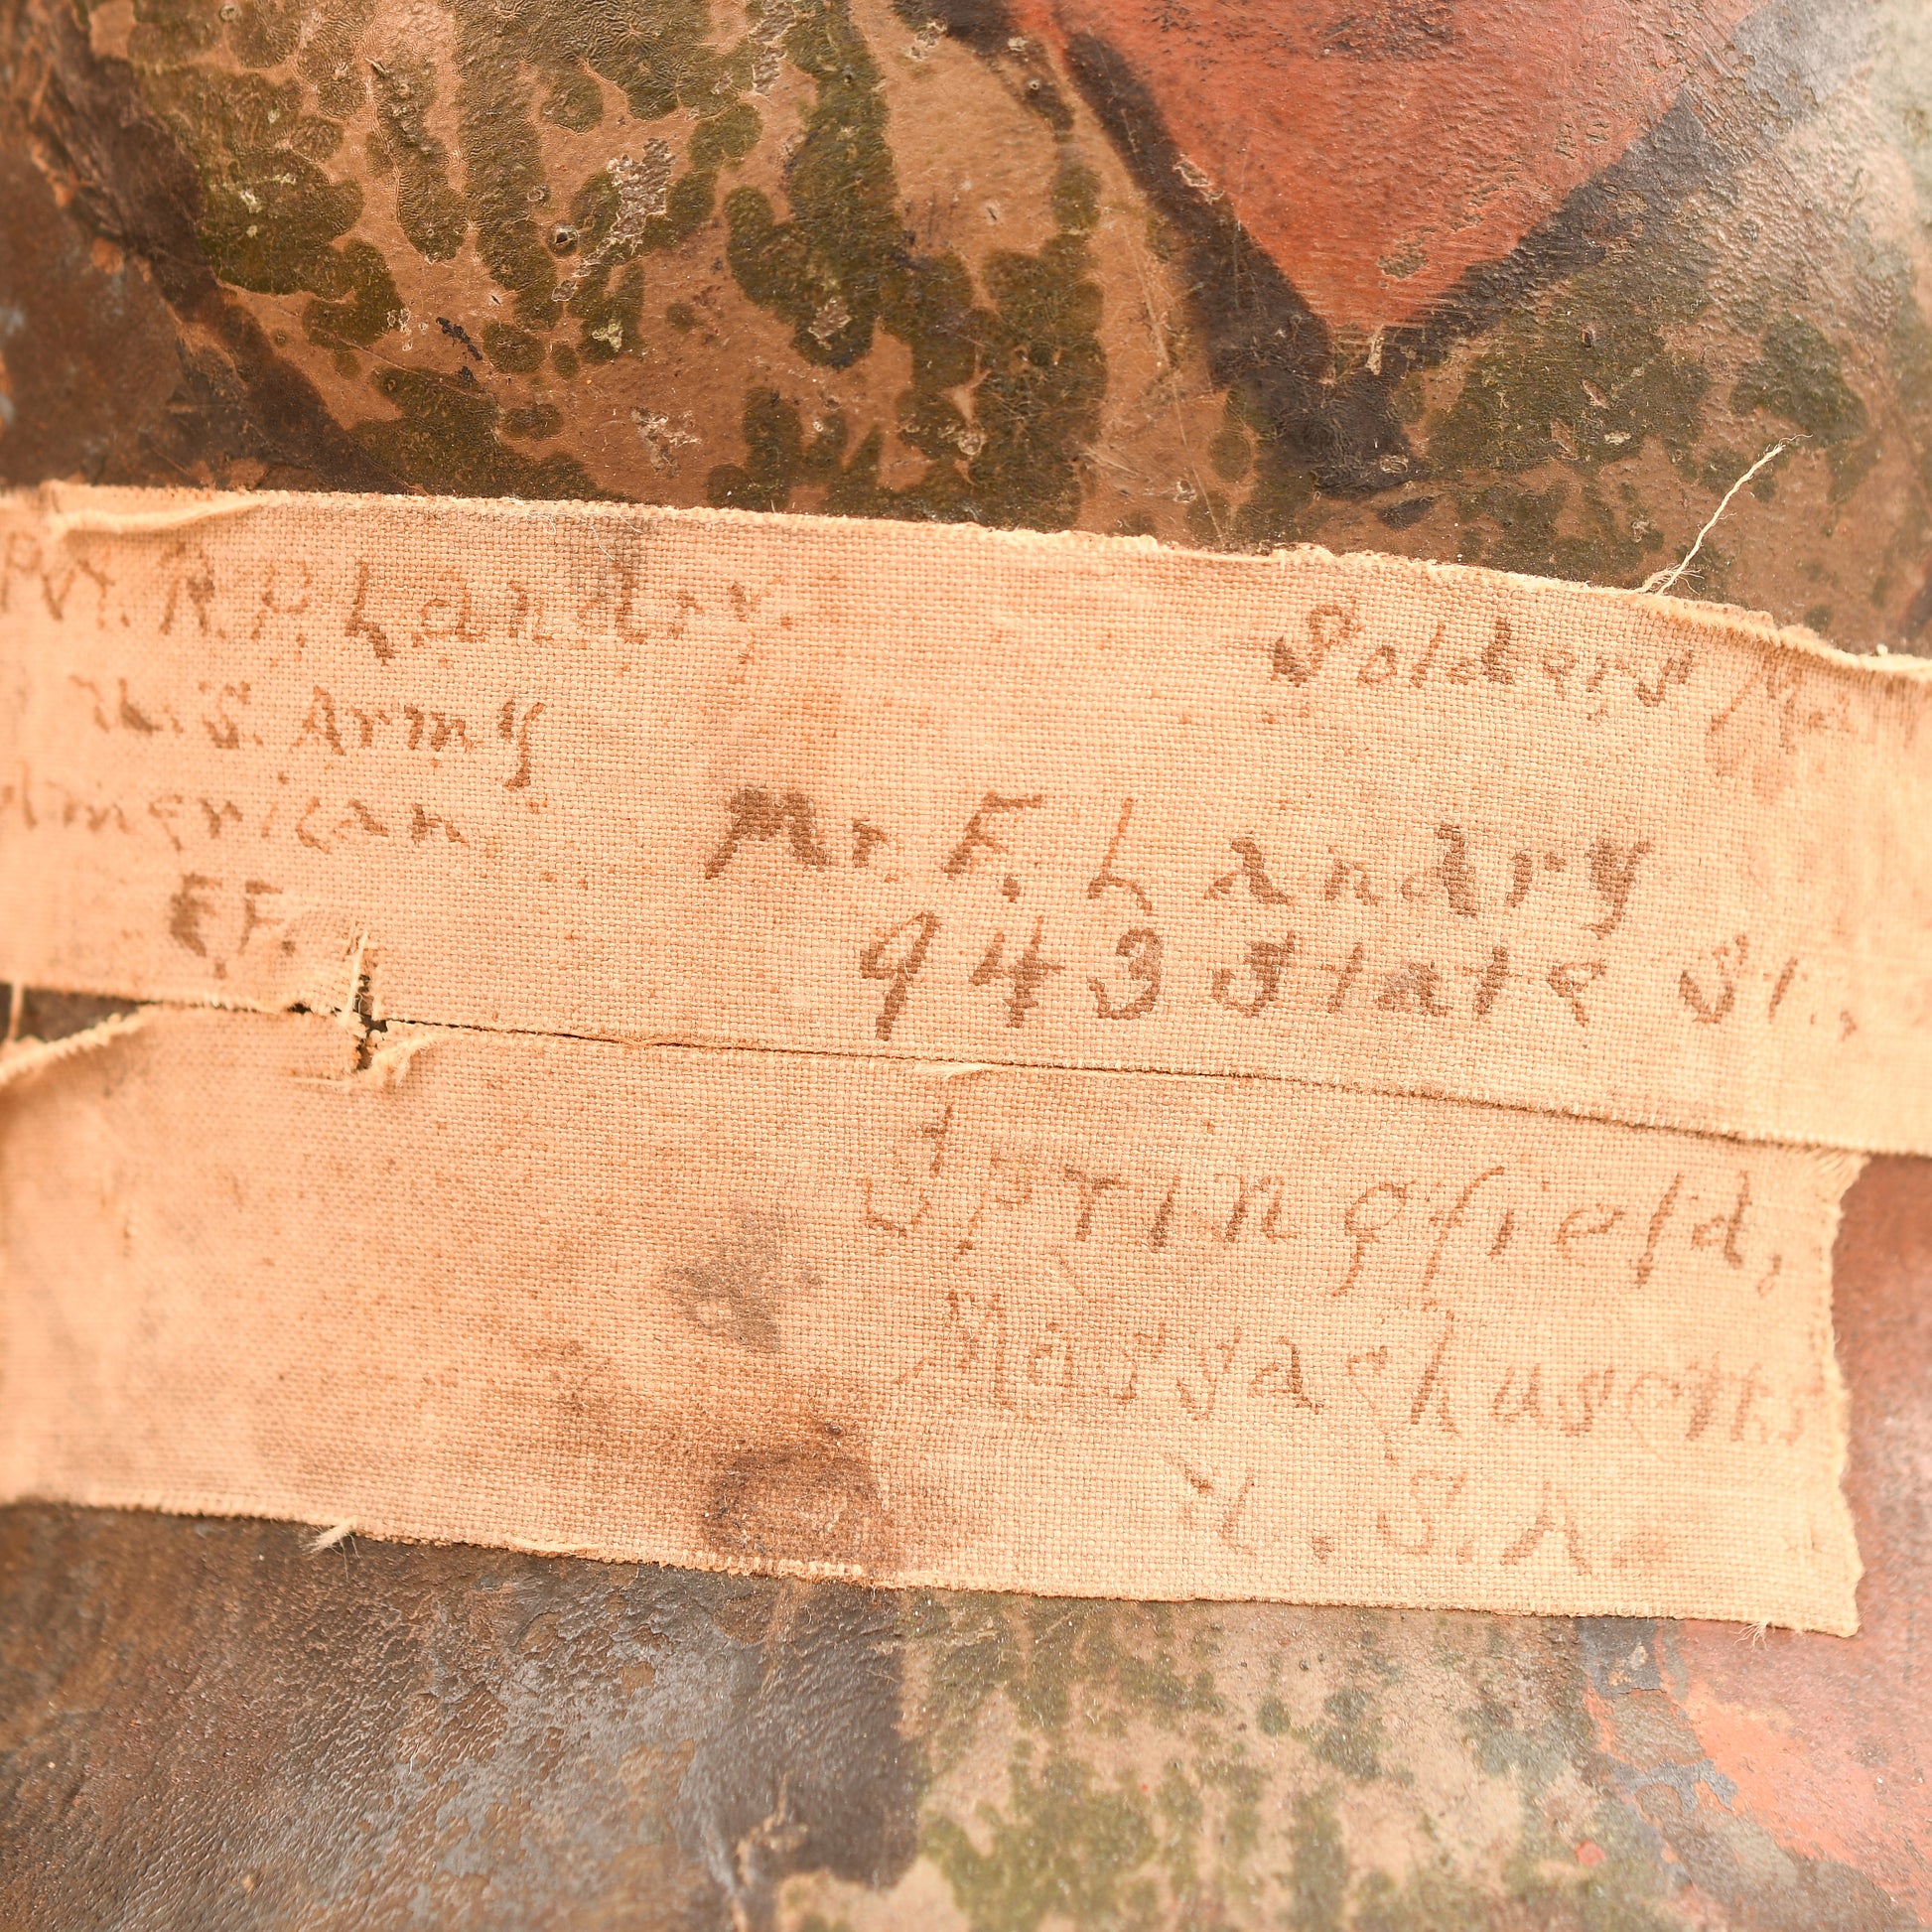 Pvt. R. P. Landry.
U.S. Army
American
E.F.
Solders
Mr. F. Landry
943 State St.,
Springfield,
Massachusetts
U.S.A.